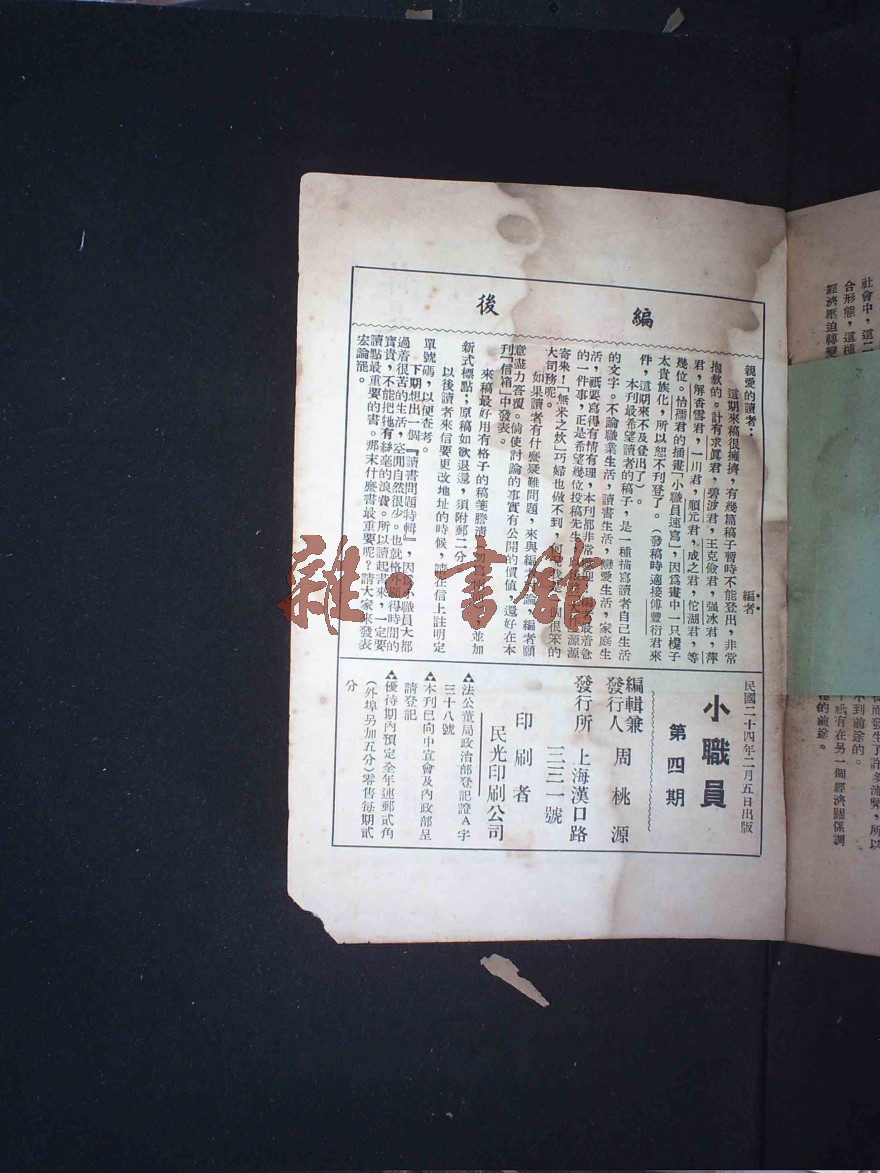 編後
親愛的讀者：
這期來稿很擁擠，有幾篇稿子暫時不能登出，非常
抱歉的。計有求眞君，碧波君，王克儉君，强冰君，萍
君，解香雪君，一川君，順元君，成之君，佗湖君，等
幾位。怡孺君的插畫「小職員速寫」，因爲畫中一只櫈子
太貴族化，所以恕不刊登了。（發稿時適接傅豐衍君來
件，這期來不及登出了）。
本刊最希望讀者的稿子，是一種描寫讀者自己生活
的文字。不論職業生活，讀書生活，戀愛生活，家庭生
活，祇要寫得有情有理，本刊都非常歡迎，編者最着急
的一件事，正是希望幾位投稿先生，源源
寄來！「無米之炊」巧婦也做不到，何一個很笨的
大司務呢。
如果讀者有什麼疑難問題，來與編者討論，編者願
意盡力答覆。倘使討論的事實有公開的價值，還好在本
刊「信箱」中發表。
來稿最好用有格子的稿箋謄清，勿寫並加
新式標點；原稿如欲退還，須附郵二分
以後讀者來信要更改地址的時候，請在信上註明定
單號碼，以便查考。
下期想出一個『讀書問題特輯』，因爲小職員大都
過着很苦的生活，空閒自然很少。也就格外顯得時間的
寶貴，不能把牠有絲毫的浪費。所以讀起書來，一定要
讀點最重要的書。那末什麼書最重要呢？請大家來發表
宏論罷。
編者
民國二十四年二月五日出版
小職員
第四期
編輯兼
發行人 周桃源
發行所 上海漢口路
三三一號
印刷者
民光印刷公司
▲法公董局政治部登記證A字
三十八號
▲本刊已向中宣會及內政部呈
請登記
▲優待期內預定全年連郵貳角
（外埠另加五分）零售每期貳
分
社會中，這二
合形態，這種
經濟壓迫轉變
而發生了許多流弊，所以
不到前途的。
祇有在另一個經濟關係調
的前途。
雜·書館